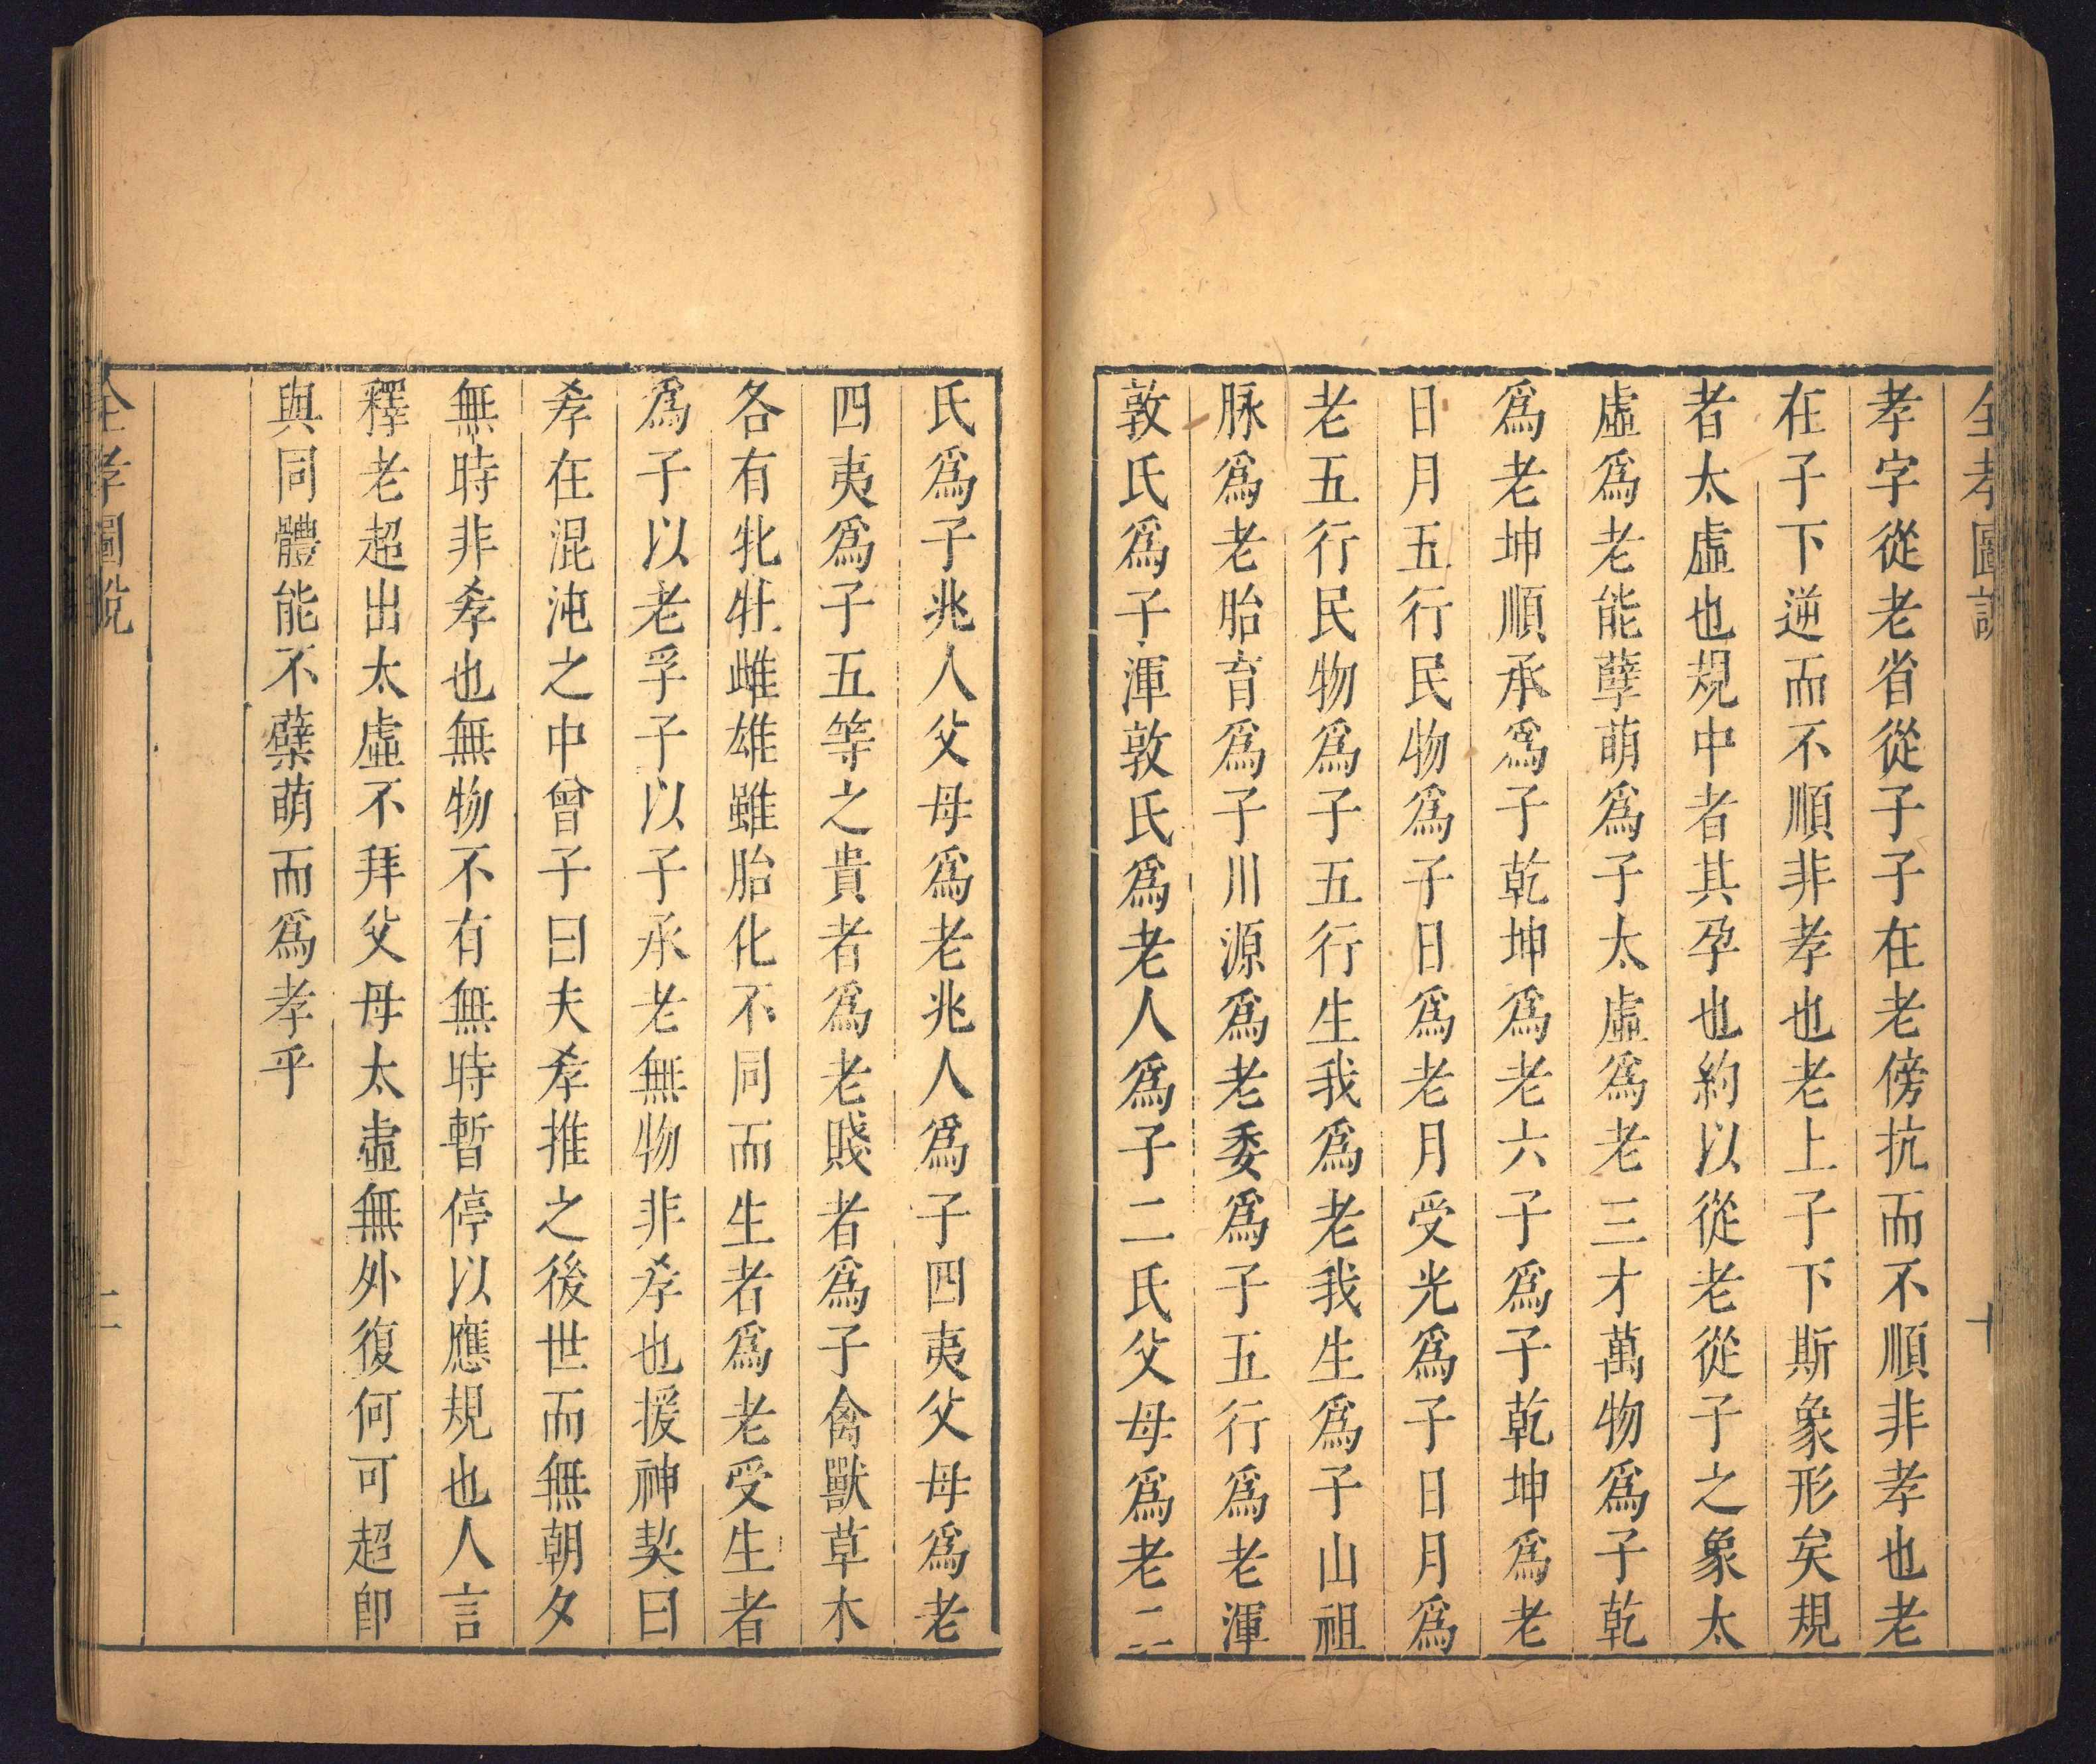 全孝圖說
十
孝字從老省從子子在老傍抗而不順非孝也老
在子下逆而不順非孝也老上子下斯象形矣規
者太虛也規中者其孕也約以從老從子之象太
虛爲老能孽萌爲子太虛爲老三才萬物爲子乾
爲老坤順承爲子乾坤爲老六子爲子乾坤爲老
日月五行民物爲子日爲老月受光爲子日月爲
老五行民物爲子五行生我爲老我生爲子山祖
脉爲老胎育爲子川源爲老委爲子五行爲老渾
敦氏爲子渾敦氏爲老人爲子二氏父母爲老二
氏爲子兆人父母爲老兆人爲子四夷父母爲老
四夷爲子五等之貴者爲老賤者爲子禽獸草木
各有牝牡雌雄雖胎化不同而生者爲老受生者
爲子以老孚子以子承老無物非孝也援神契曰
孝在混沌之中曾子曰夫孝推之後世而無朝夕
無時非孝也無物不有無時暫停以應規也人言
釋老超出太虛不拜父母太虛無外復何可超卽
與同體能不蘖萌而爲孝乎
全孝圖說